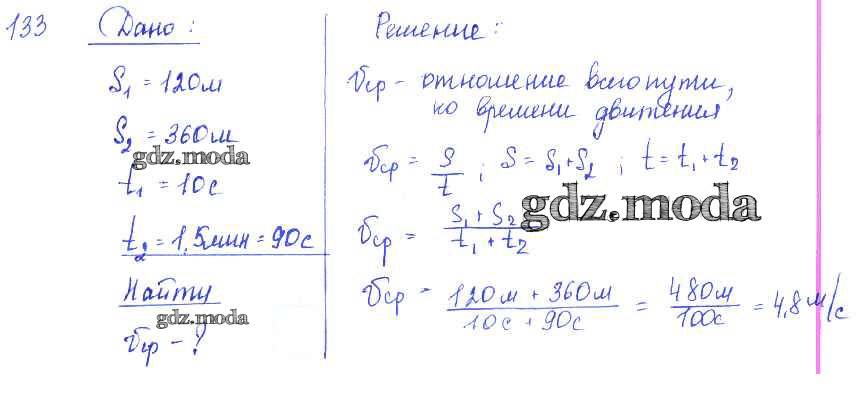 133
Дано:
S₁ = 120м
S₂ = 360м
gdz.moda
t₁ = 10с
t₂ = 1,5мин = 90с
Найти
gdz.moda
vср - ?
Решение:
vср - отношение всего пути,
ко времени движения
vср = S/t ; S = S₁+S₂ ; t = t₁+t₂
gdz.moda
vср = (S₁ + S₂)/(t₁ + t₂)
vср = (120м + 360м)/(10с + 90с) = 480м/100с = 4,8 м/с